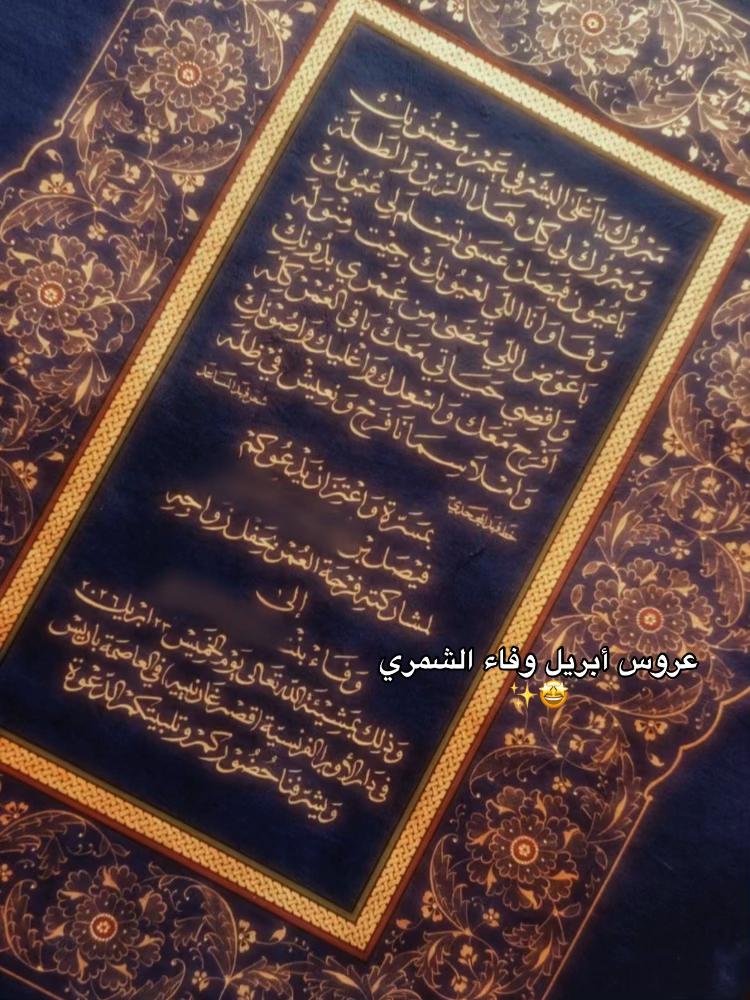 مبروك يا أغلى البشر في عين مضنونك
ومبروك لي كل هذا الزين والطلة
يا عيون فيصل عسى تسلم لي عيونك
وفا وانا اللي لعيونك جيت متوله
يا عوض اللي مضى من عمري بدونك
واقضي حياتي معك باقي العمر كله
افرح معك واسعدك واغليك واصونك
واملا سمانا فرح ونعيش في ظله
بمسرة واعتزاز يدعوكم
فيصل بن
لمشاركته فرحة العمر بحفل زواجه
إلى
وفاء بنت
وذلك بمشيئة الله تعالى يوم الخميس ٢٣ ابريل ٢٠٢٦
في دار الأوبرا الفرنسية (قصر غارنييه) في العاصمة باريس
ويشرفنا حضوركم وتلبيتكم الدعوة
عروس أبريل وفاء الشمري